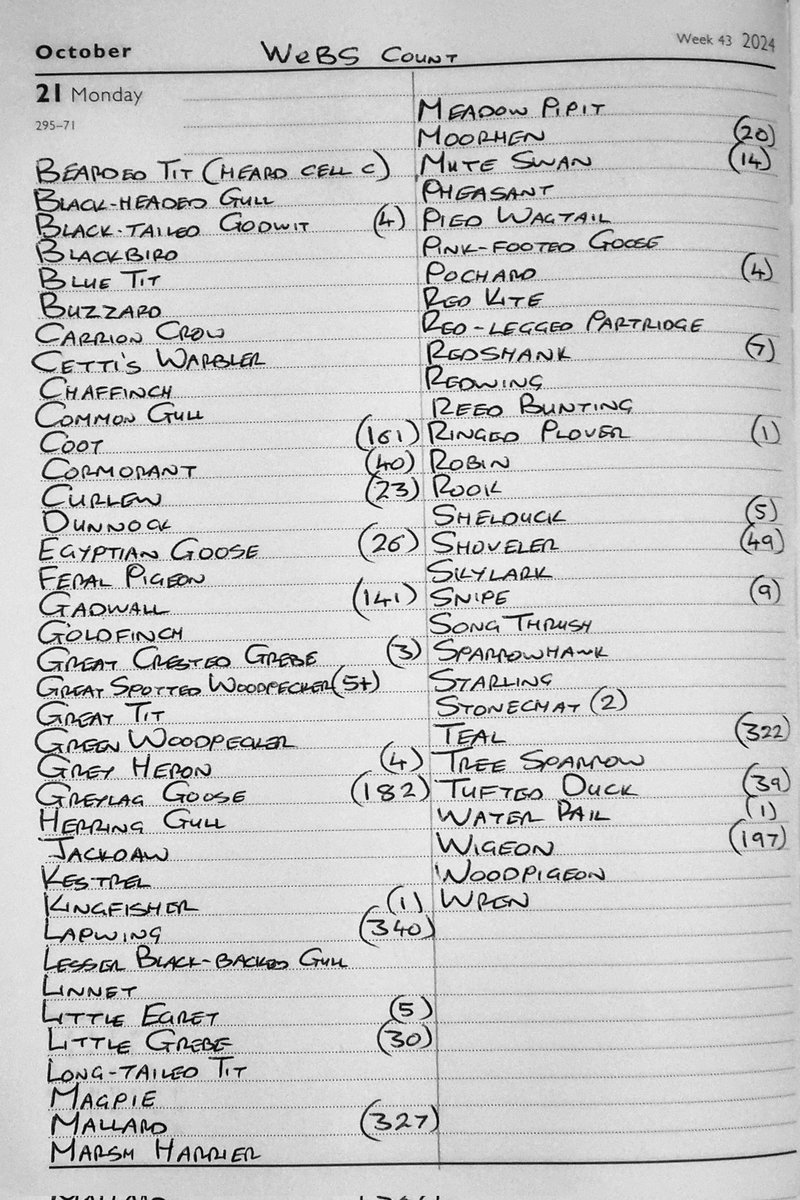 October WeBS COUNT Week 43 2024
21 Monday
295–71
BEARDED TIT (HEARD CELL C)
BLACK-HEADED GULL
BLACK-TAILED GODWIT (4)
BLACKBIRD
BLUE TIT
BUZZARD
CARRION CROW
CETTI'S WARBLER
CHAFFINCH
COMMON GULL
COOT (161)
CORMORANT (40)
CURLEW (23)
DUNNOCK
EGYPTIAN GOOSE (26)
FERAL PIGEON
GADWALL (141)
GOLDFINCH
GREAT CRESTED GREBE (3)
GREAT SPOTTED WOODPECKER (5+)
GREAT TIT
GREEN WOODPECKER
GREY HERON (4)
GREYLAG GOOSE (182)
HERRING GULL
JACKDAW
KESTREL
KINGFISHER (1)
LAPWING (340)
LESSER BLACK-BACKED GULL
LINNET
LITTLE EGRET (5)
LITTLE GREBE (30)
LONG-TAILED TIT
MAGPIE
MALLARD (327)
MARSH HARRIER
MEADOW PIPIT
MOORHEN (20)
MUTE SWAN (14)
PHEASANT
PIED WAGTAIL
PINK-FOOTED GOOSE
POCHARD (4)
RED KITE
RED-LEGGED PARTRIDGE
REDSHANK (7)
REDWING
REED BUNTING
RINGED PLOVER (1)
ROBIN
ROOK
SHELDUCK (5)
SHOVELER (49)
SKYLARK
SNIPE (9)
SONG THRUSH
SPARROWHAWK
STARLING
STONECHAT (2)
TEAL (322)
TREE SPARROW
TUFTED DUCK (39)
WATER RAIL (1)
WIGEON (197)
WOODPIGEON
WREN